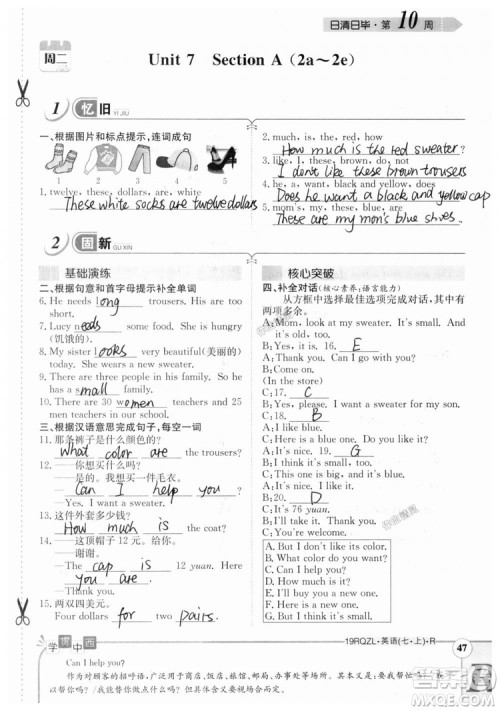 日清日毕·第10周
周二
Unit 7 Section A（2a～2e）
1 忆旧 YI JIU
一、根据图片和标点提示，连词成句
1 2 3 4 5
1. twelve, these, dollars, are, white, socks
These white socks are twelve dollars.
2. much, is, the, red, how
How much is the red sweater?
3. like, I, these, brown, do, not
I don't like these brown trousers
4. he, a, want, black and yellow, does
Does he want a black and yellow cap
5. mom's, my, are, blue, these
These are my mom's blue shoes.
2 固新 GU XIN
基础演练
二、根据句意和首字母提示补全单词
6. He needs long trousers. His trousers are too
short.
7. Lucy needs some food. She is hungry
(饥饿的).
8. My sister looks very beautiful(美丽的)
today.
9. There are three people in my family. I
have a small family.
10. There are 30 women teachers and 25
men teachers in our school.
三、根据汉语意思完成句子，每空一词
11. 那条裤子是什么颜色的？
What color are the trousers?
12. —你想买什么吗？
—是的。我想买一件毛衣。
—Can I help you?
—Yes. I want a sweater.
13. 这件外套多少钱？
How much is the coat?
14. —这顶帽子 12 元。给你。
—谢谢。
—The cap is 12 yuan. Here
you are.
—Thank you.
15. 两双四美元。
Four dollars for two pairs.
核心突破
四、补全对话(核心素养：语言能力)
从方框中选择最佳选项完成对话，其中有
两项多余。
A: Mom, look at my sweater. It's small. And
it's old, too.
B: Yes, it is. 16. E
A: Thank you. Can we go now?
B: Come on.
(In the store)
C: 17. A
B: Yes, please. I want a sweater for my son.
C: 18. B
A: I like blue.
C: Here is a blue one. Do you like it?
A: It's nice. 19. G
B: I think it's small, too.
C: This one is big.
A: It's nice. I like it.
B: 20. D
C: It's 76 yuan.
B: OK. I'll take it. Thank you.
C: You're welcome.
A. Can I help you?
B. What color do you like?
C. But I don't like its color.
D. How much is it?
E. I'll buy you a new one.
F. What size do you want?
G. But I think it's small.
学博中西
19RQZL·英语(七·上)·R
47
Can I help you?